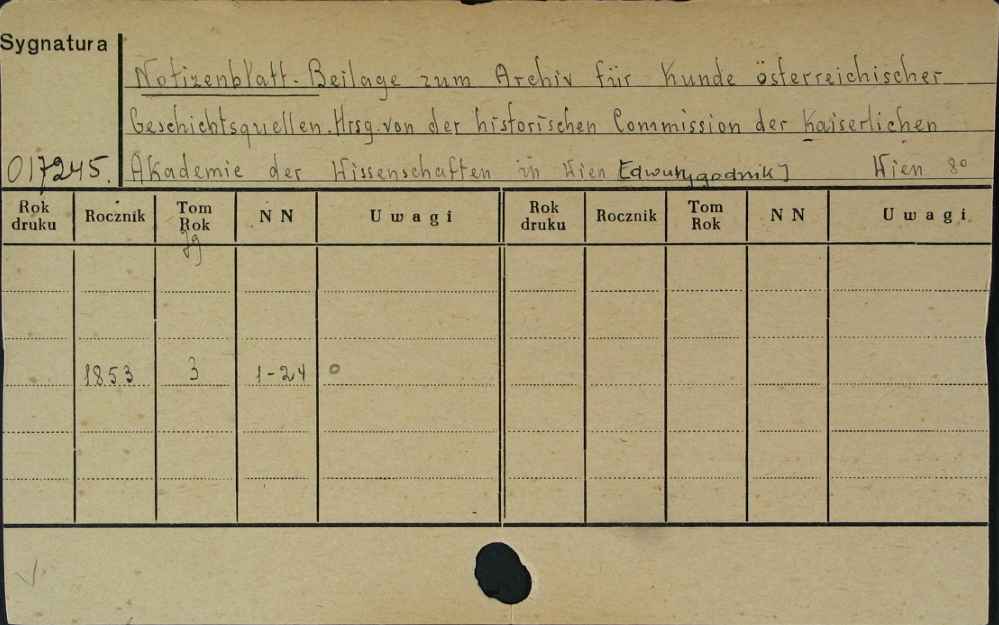 Sygnatura
Notizenblatt. Beilage zum Archiv für Kunde österreichischer
Geschichtsquellen. Hrsg. von der historischen Commission der Kaiserlichen
017245. Akademie der Wissenschaften in Wien [dwutygodnik] Wien 8º
Rok druku Rocznik Tom Rok NN Uwagi Rok druku Rocznik Tom Rok NN Uwagi
Jg
1853 3 1-24 o